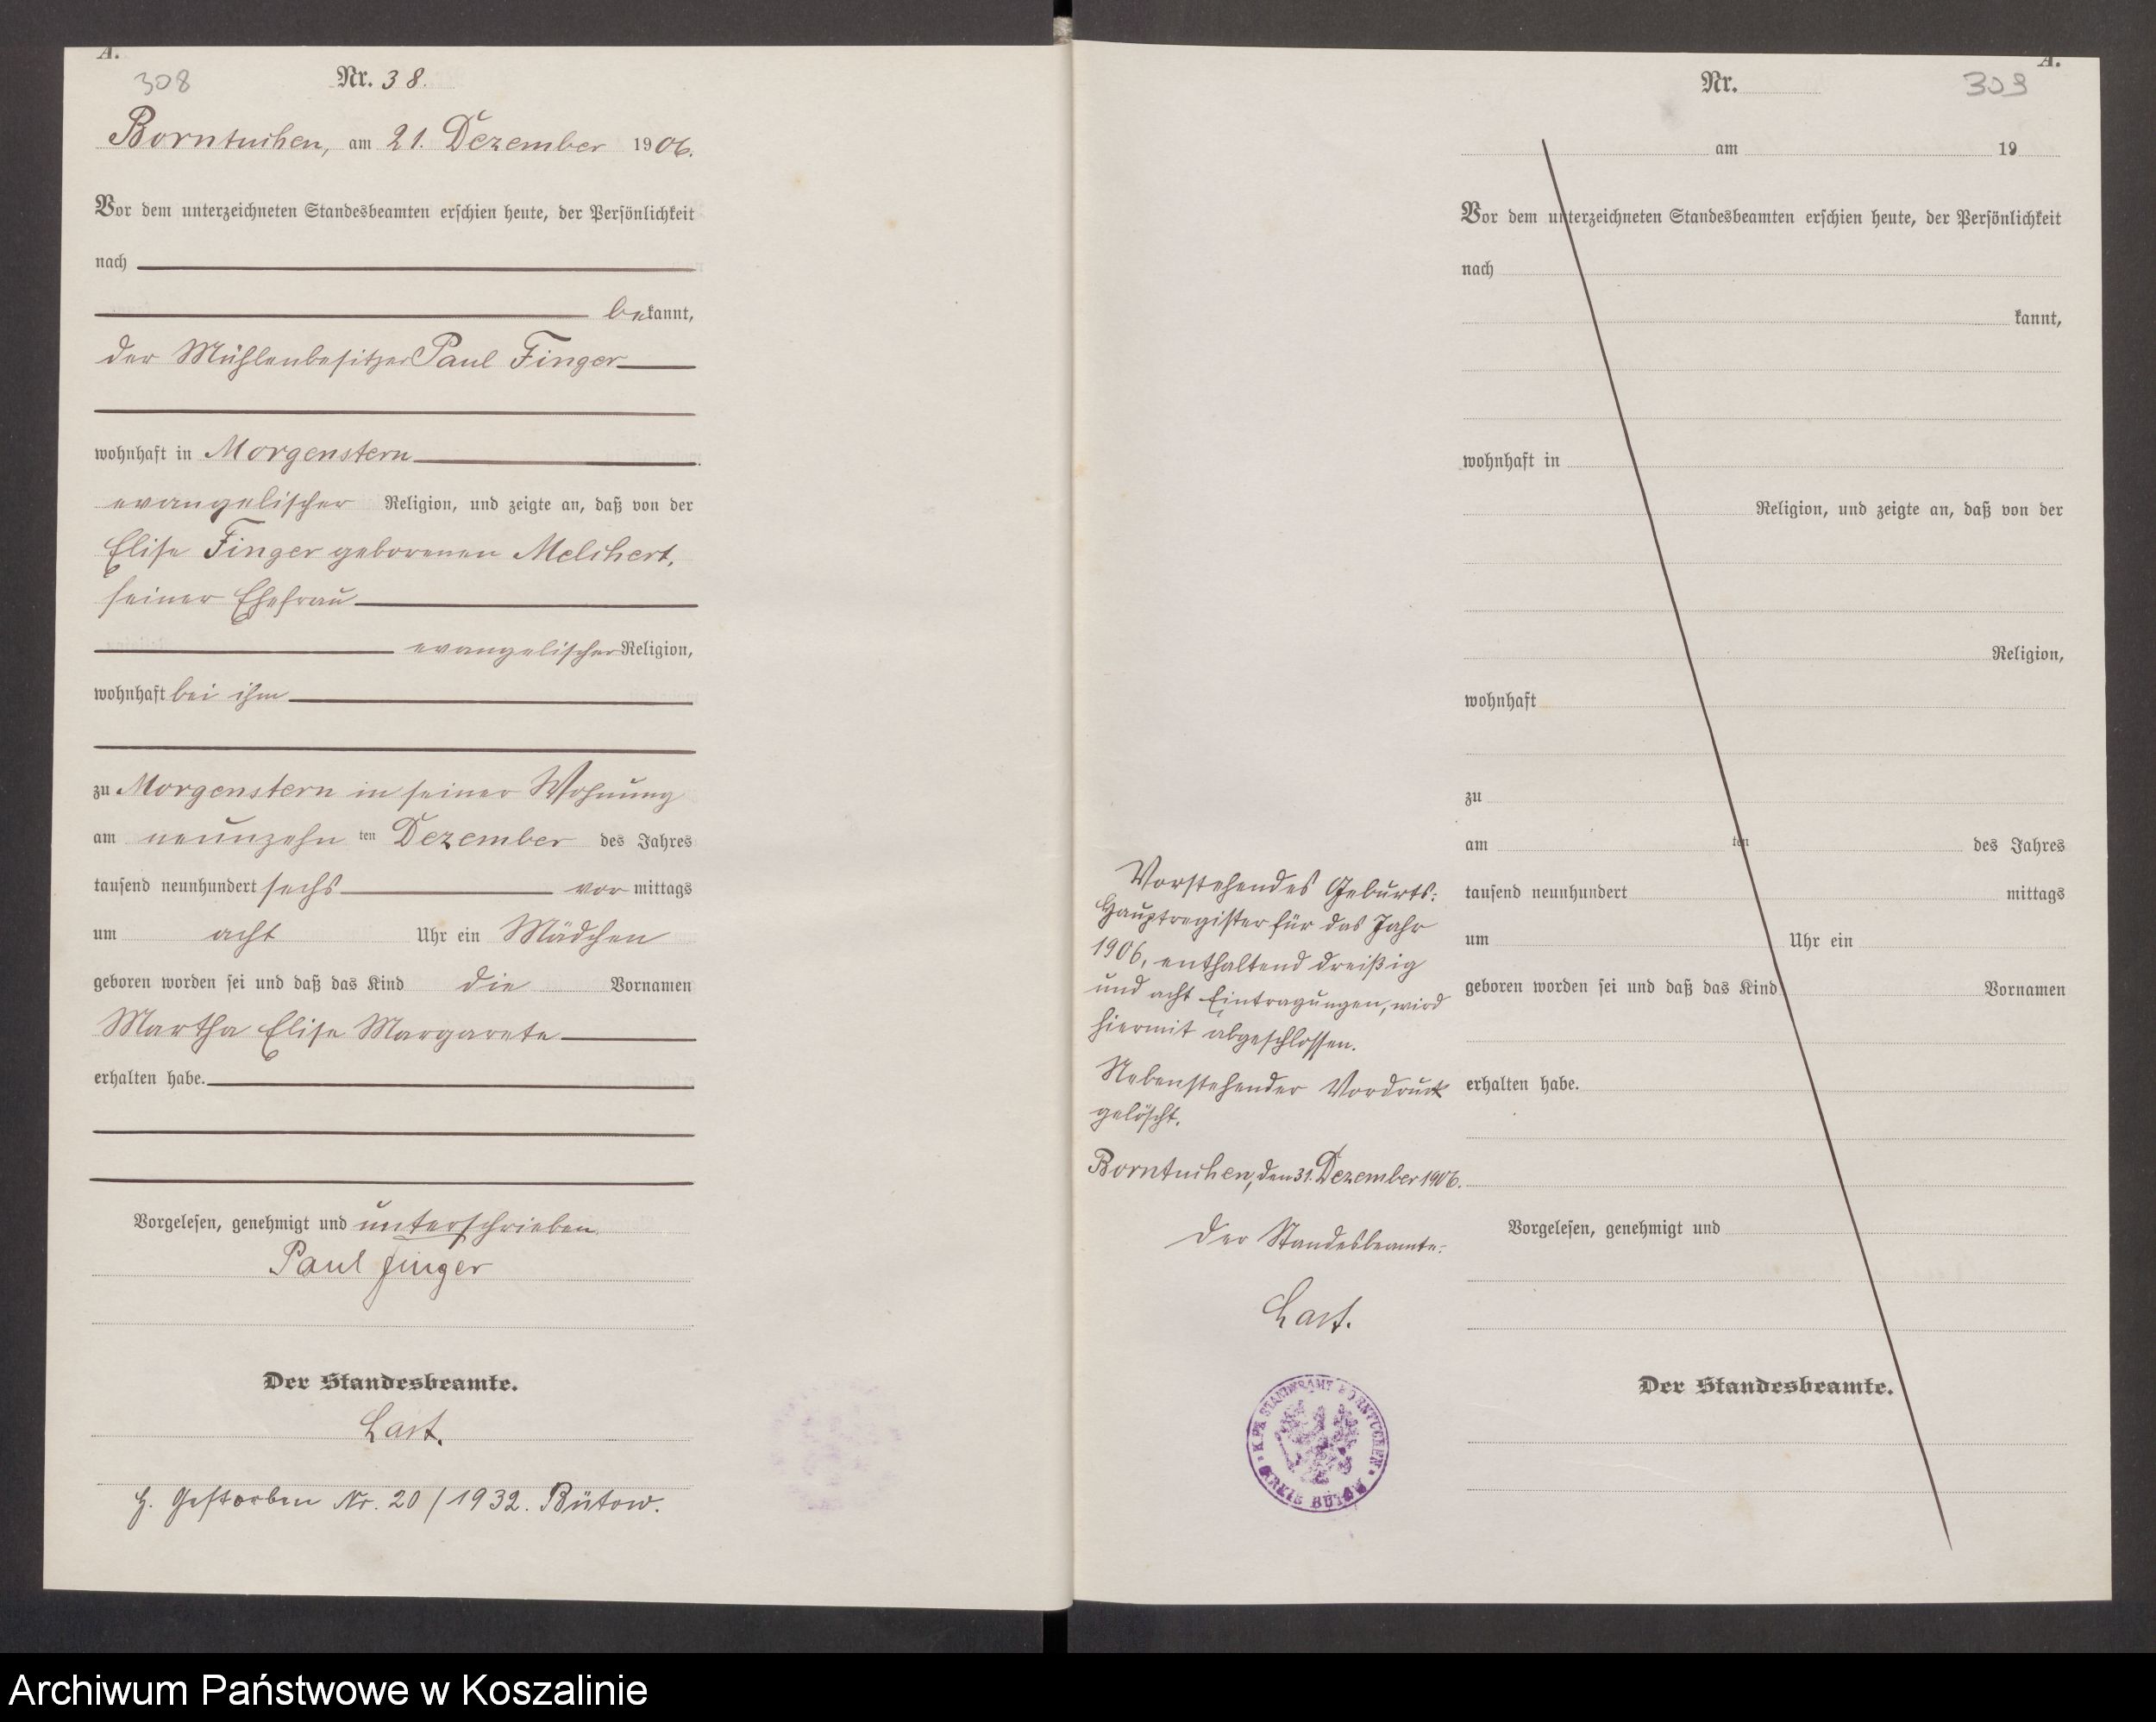 A.
308
Nr. 38.
Borntuchen, am 21. Dezember 1906.
Vor dem unterzeichneten Standesbeamten erschien heute, der Persönlichkeit
nach
bekannt,
der Mühlenbesitzer Paul Finger
wohnhaft in Morgenstern
evangelischer Religion, und zeigte an, daß von der
Elise Finger geborenen Melchert,
seiner Ehefrau
evangelischer Religion,
wohnhaft bei ihm
zu Morgenstern in seiner Wohnung
am neunzehn ten Dezember des Jahres
tausend neunhundert sechs vor mittags
um acht Uhr ein Mädchen
geboren worden sei und daß das Kind die Vornamen
Martha Elise Margarete
erhalten habe.
Vorgelesen, genehmigt und unterschrieben
Paul Finger
Der Standesbeamte.
Last.
Gestorben Nr. 20/1932. Bütow.
A.
Nr.
309
am 19
Vor dem unterzeichneten Standesbeamten erschien heute, der Persönlichkeit
nach
kannt,
wohnhaft in
Religion, und zeigte an, daß von der
Religion,
wohnhaft
zu
am ten des Jahres
tausend neunhundert mittags
um Uhr ein
geboren worden sei und daß das Kind Vornamen
erhalten habe.
Vorgelesen, genehmigt und
Der Standesbeamte.
Vorstehendes Geburts:
Hauptregister für das Jahr
1906, enthaltend dreißig
und acht Eintragungen, wird
hiermit abgeschlossen.
Nebenstehender Vordruck
gelöscht.
Borntuchen, den 31. Dezember 1906.
Der Standesbeamte:
Last.
K. PR. STANDESAMT BORNTUCHEN
KREIS BÜTOW
Archiwum Państwowe w Koszalinie